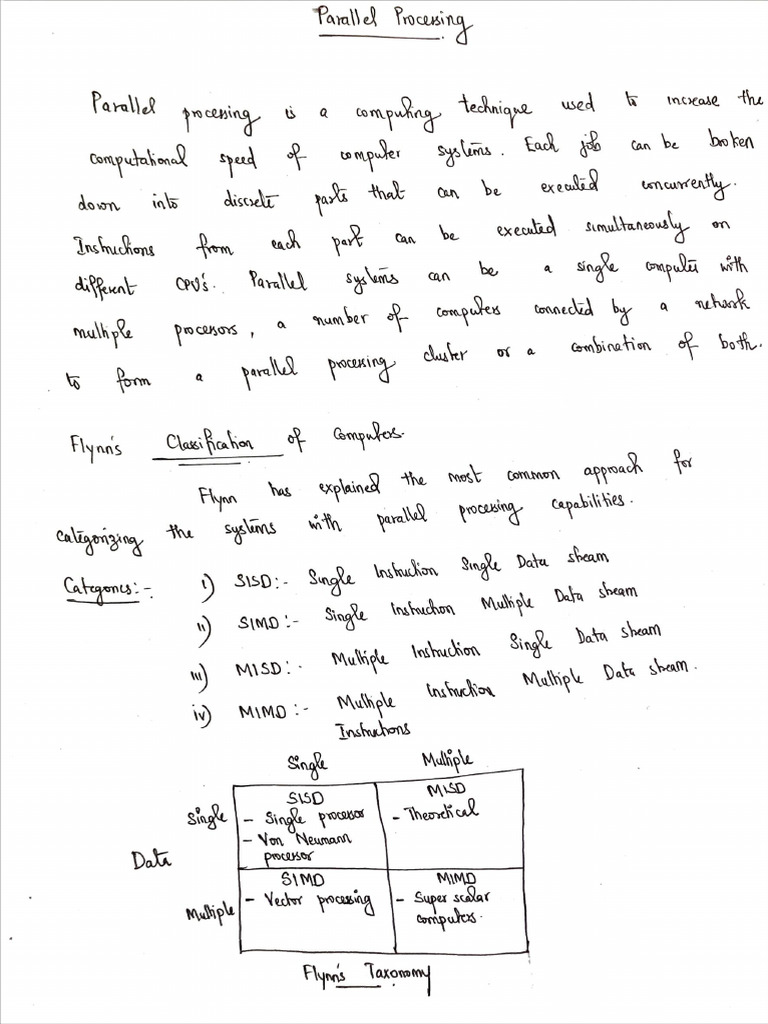 Parallel Processing
Parallel processing is a computing technique used to increase the
computational speed of computer systems. Each job can be broken
down into discrete parts that can be executed concurrently.
Instructions from each part can be executed simultaneously on
different CPU's. Parallel systems can be a single computer with
multiple processors, a number of computers connected by a network
to form a parallel processing cluster or a combination of both.
Flynn's Classification of Computers.
Flynn has explained the most common approach for
categorizing the systems with parallel processing capabilities.
Categories:-
i) SISD:- Single Instruction Single Data stream
ii) SIMD:- Single Instruction Multiple Data stream
iii) MISD:- Multiple Instruction Single Data stream
iv) MIMD:- Multiple Instruction Multiple Data stream.
Instructions
Single Multiple
Data
Single
SISD
- Single processor
- Von Neumann
processor
MISD
- Theoretical
Multiple
SIMD
- Vector processing
MIMD
- Super scalar
computers.
Flynn's Taxonomy